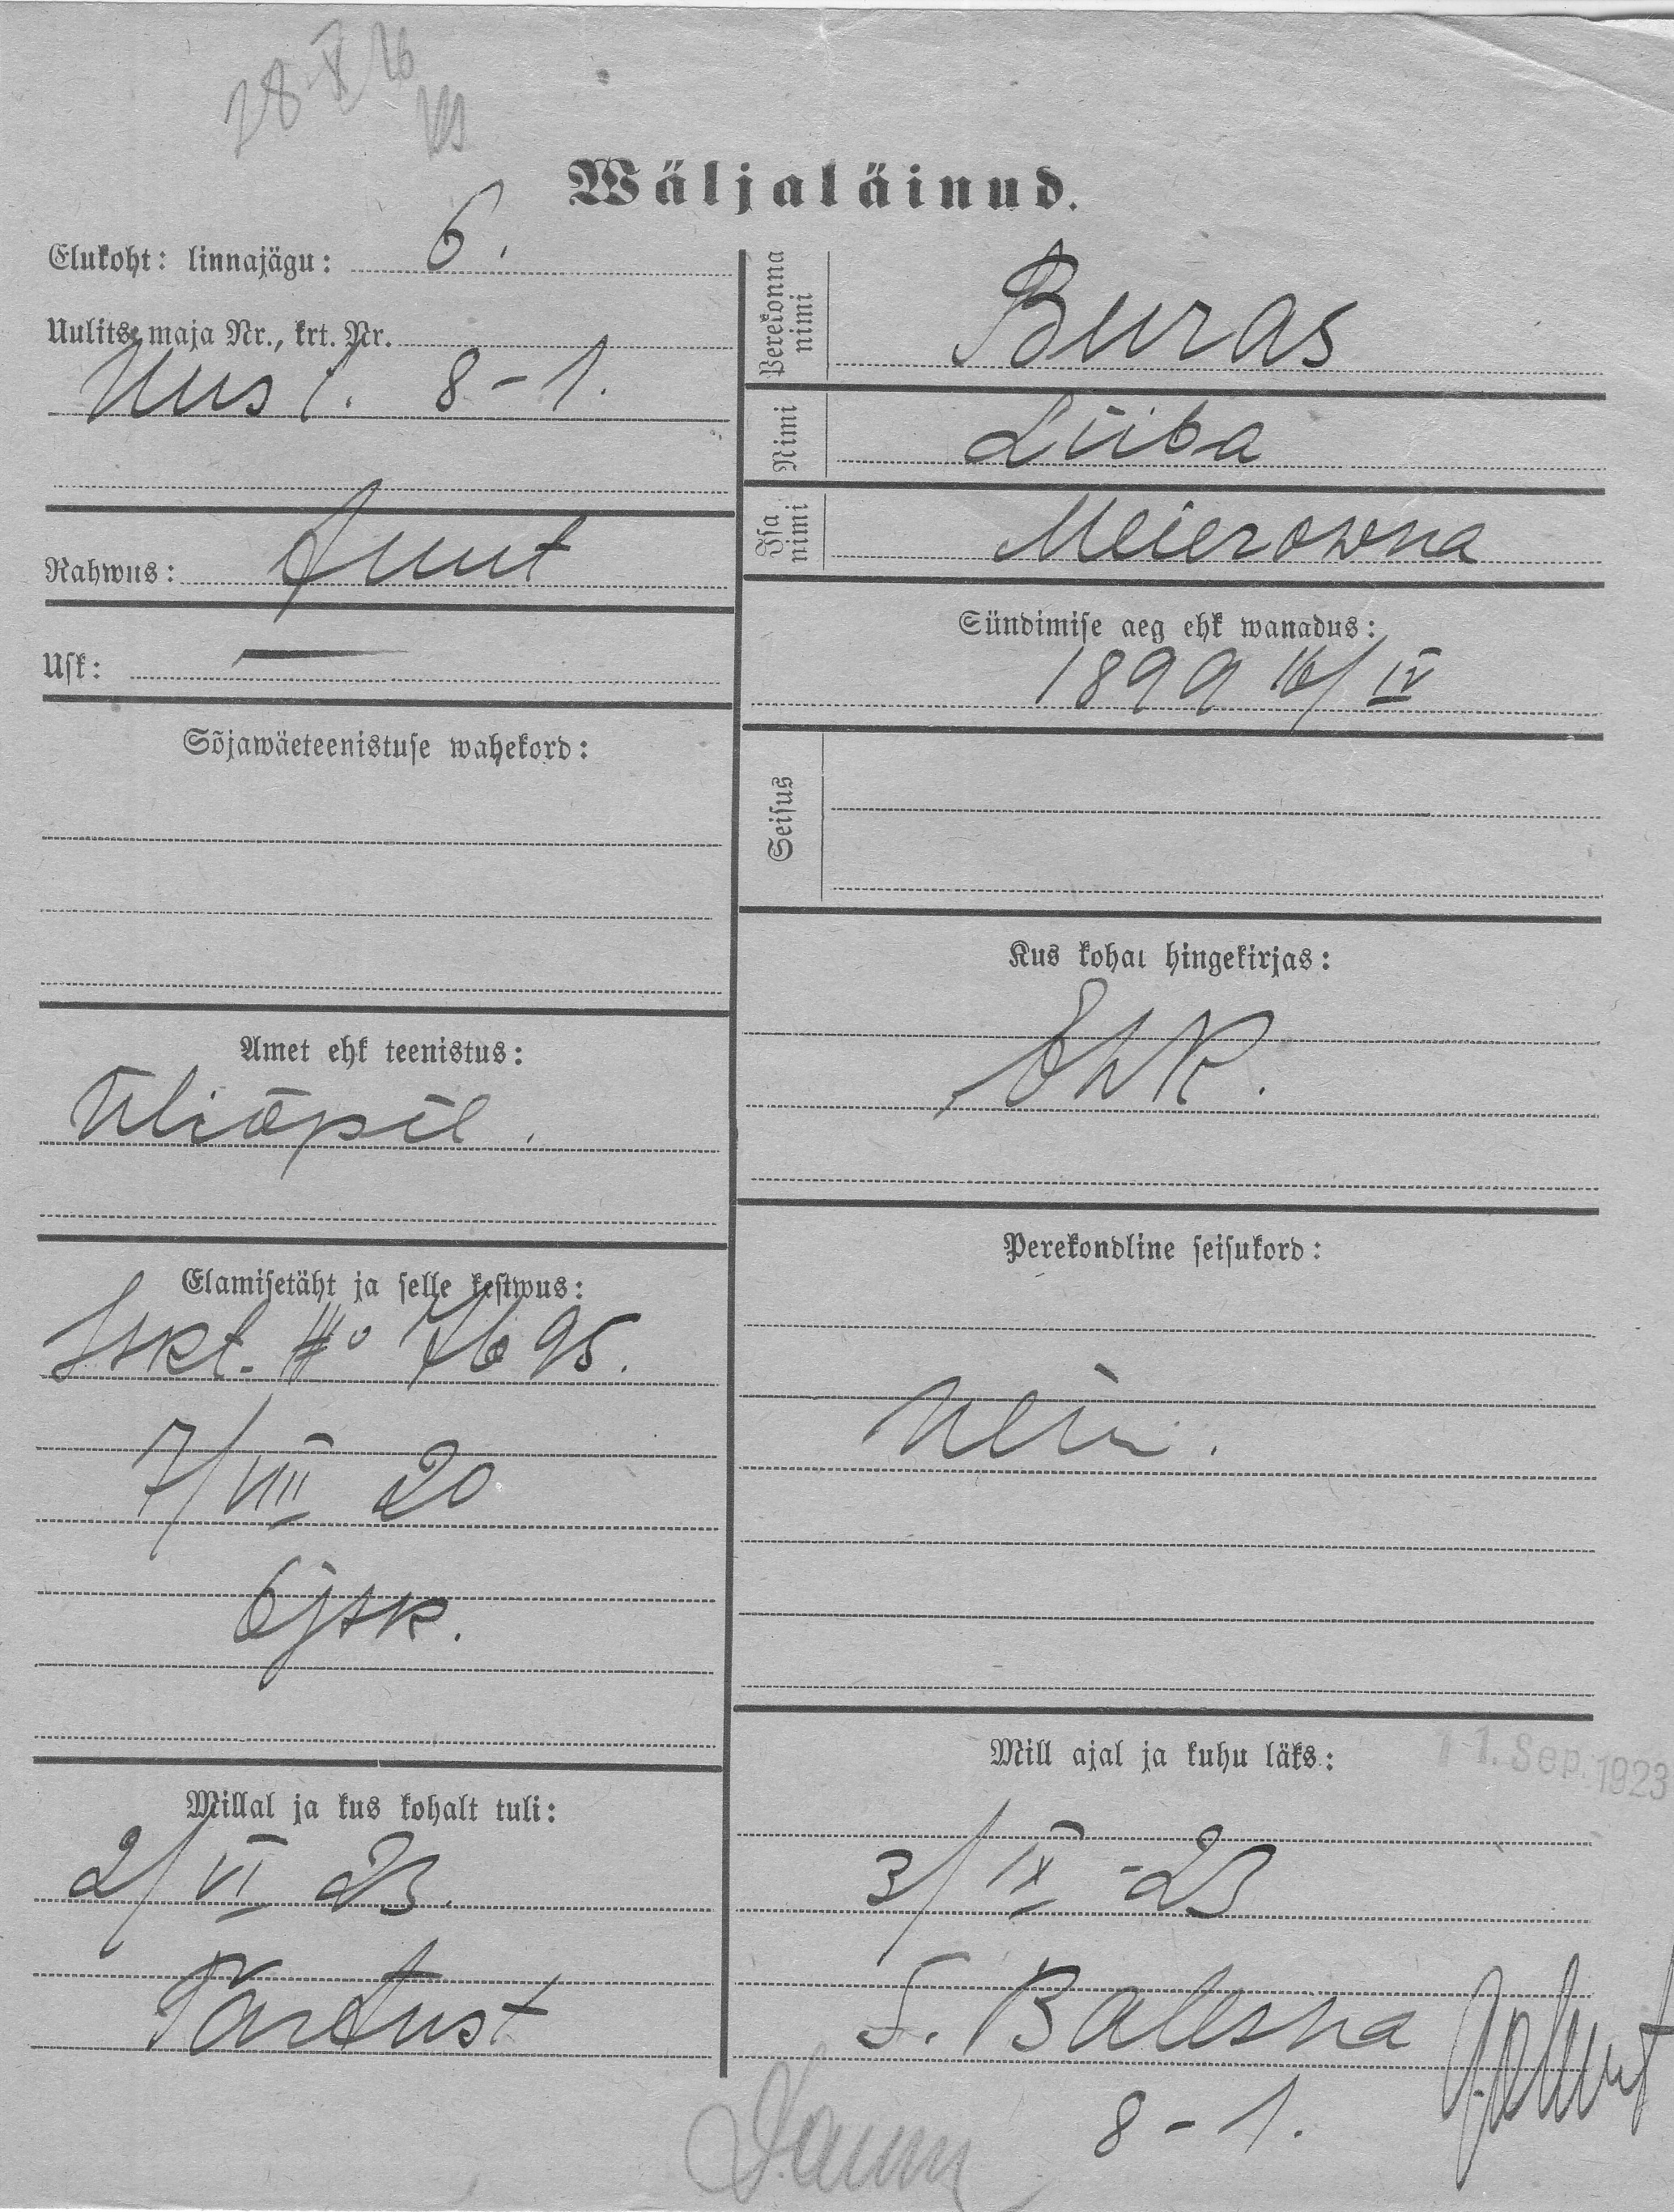 28 X 26
Wäljaläinud.
Elukoht: linnajägu: 6.
Uulits, maja Nr., krt. Nr.
Uus t. 8-1.
Rahwus: Juut
Usk: —
Sõjawäeteenistuse wahekord:
Amet ehk teenistus:
Üliõpil.
Elamisetäht ja selle kestwus:
Iskt. № 7695.
7/VIII 20
6 jsk.
Millal ja kus kohalt tuli:
2/VI 23.
Tartust
Perekonna nimi Buras
Nimi Liiba
Isa nimi Meierowna
Sündimise aeg ehk wanadus:
1899 16/IV
Seisus
Kus kohal hingekirjas:
Perekondline seisukord:
Mill ajal ja kuhu läks:
1. Sep. 1923
3/IX -23
8-1.